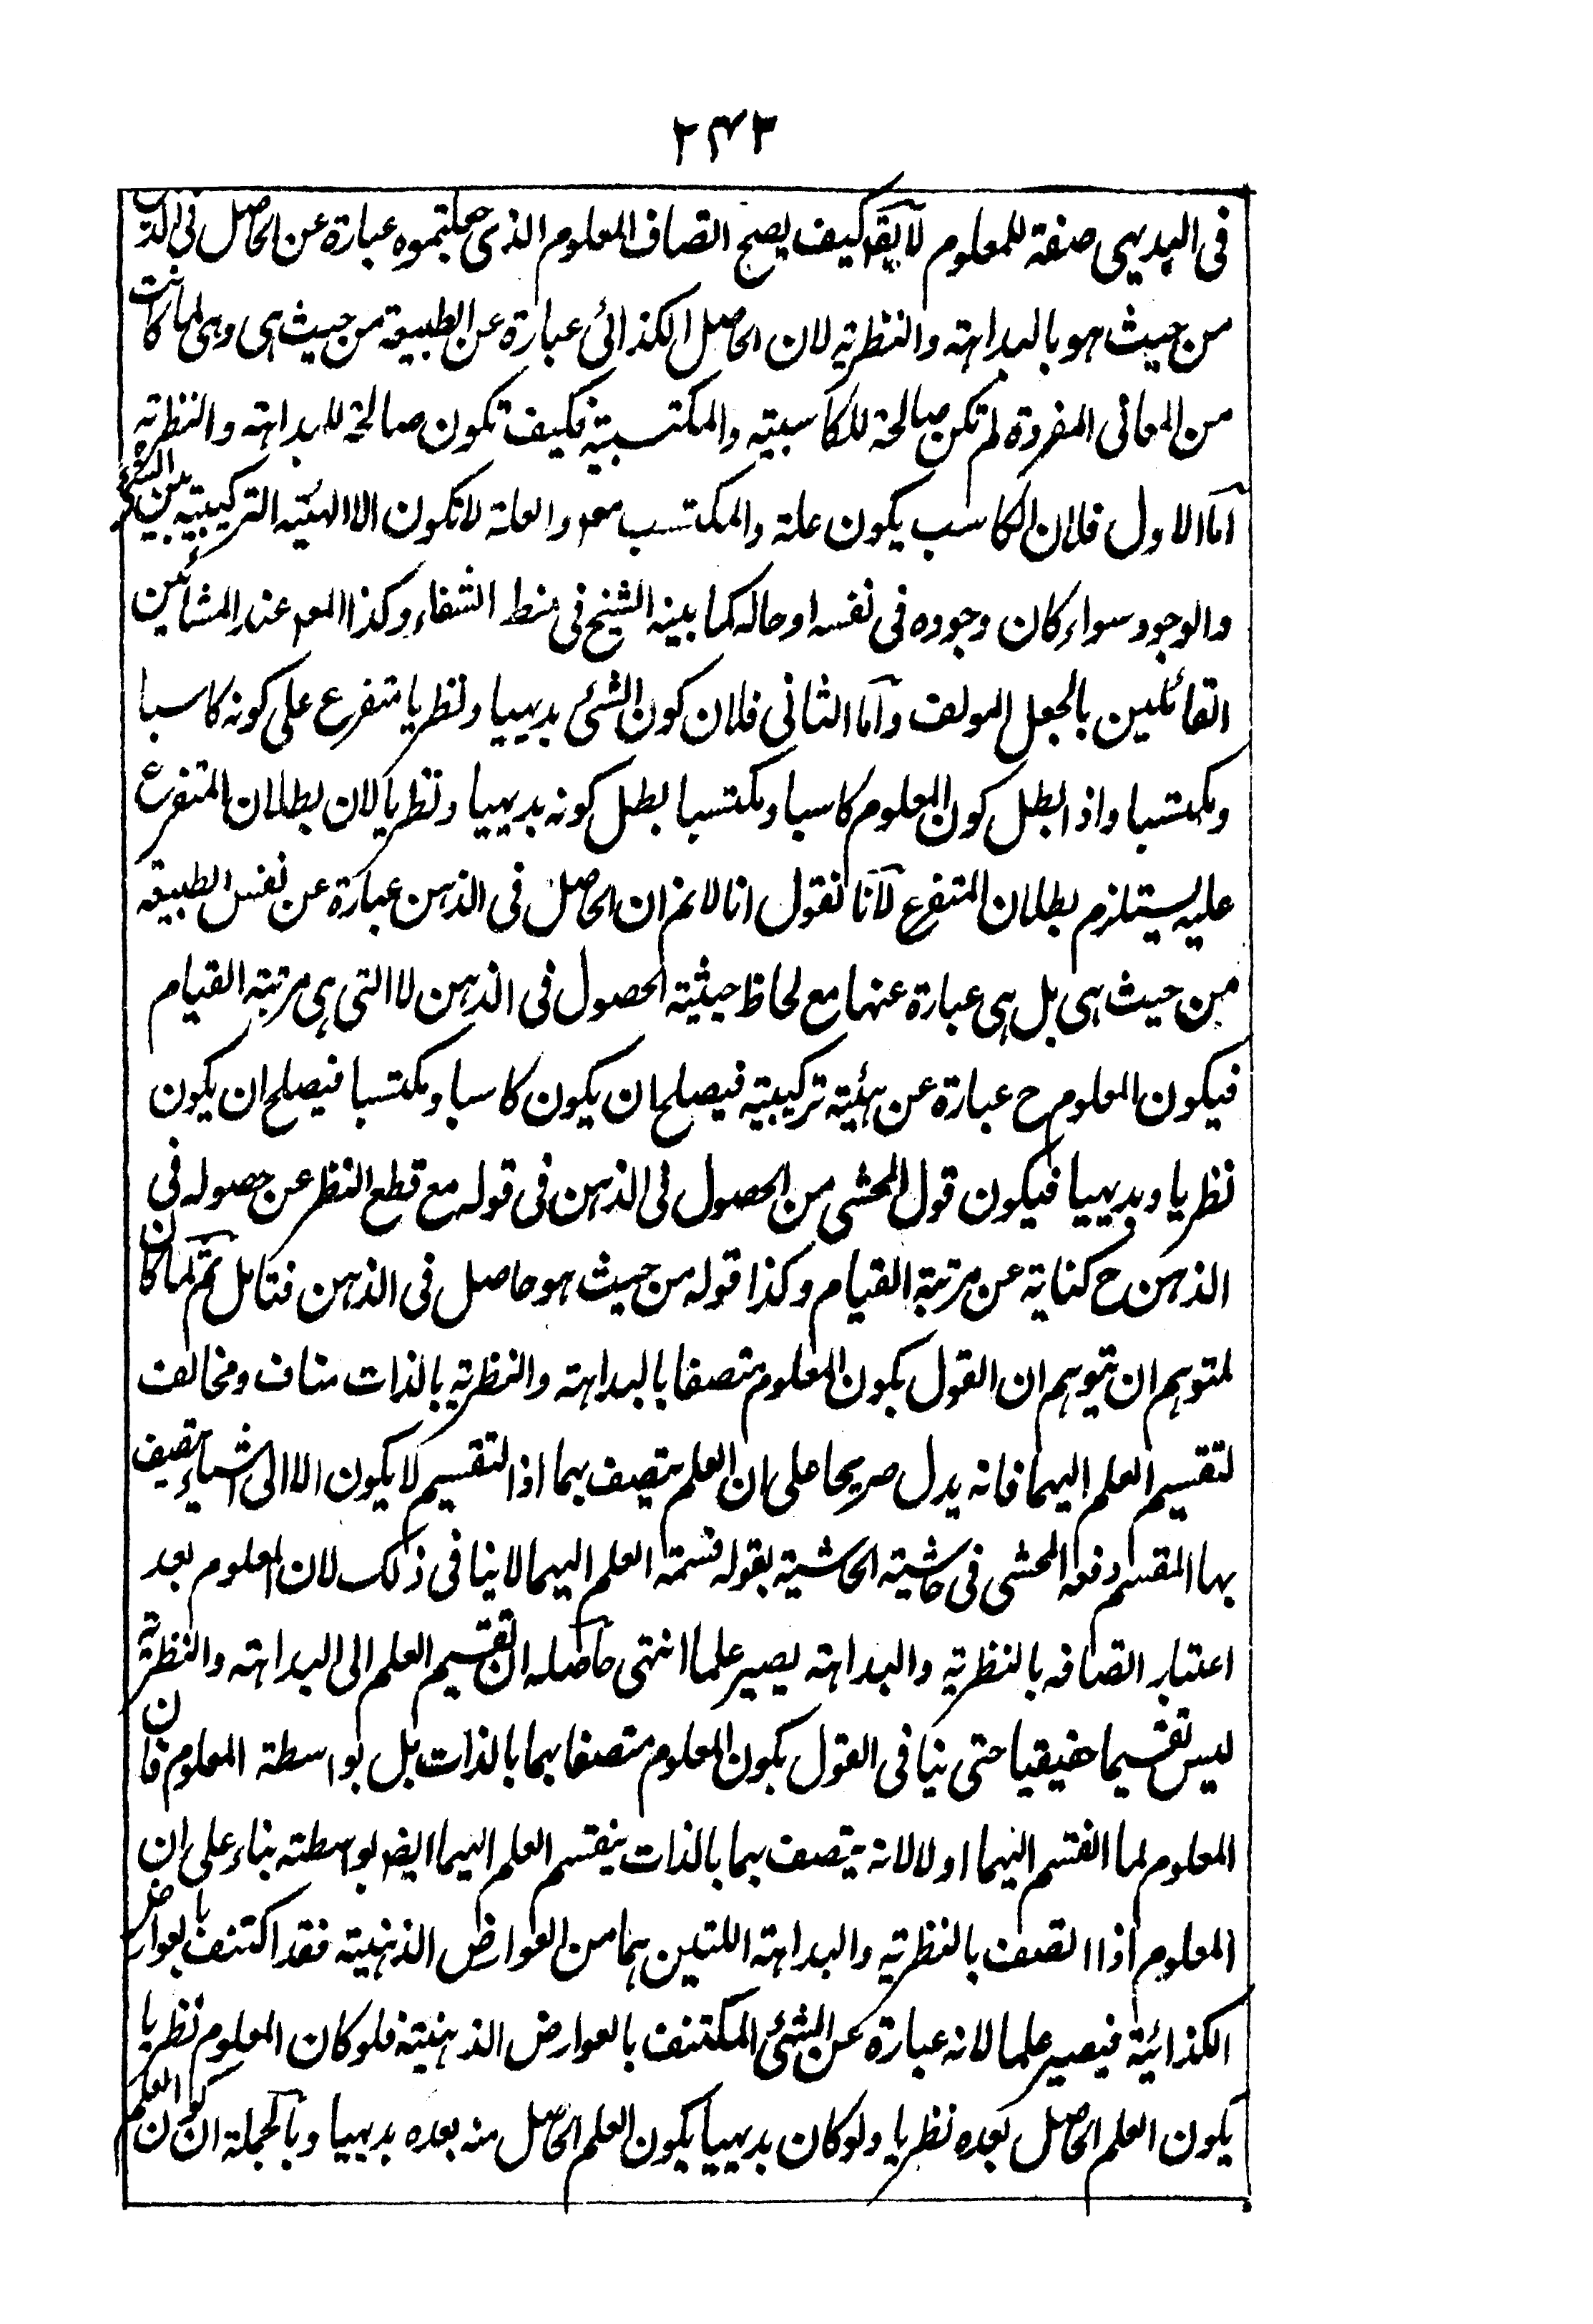 ٢٤٣
فى البديهى صفة للمعلوم لا يقر كيف يصح اتصاف المعلوم الذى جعلتموه عبارة عن الحاصل فى الذهن
من حيث هو بالبداهة والنظرية لان الحاصل الكذائى عبارة عن الطبيعة من حيث هى وهى لما كانت
من المعانى المفردة لم تكن صالحة للكاسبية والمكتسبية فكيف تكون صالحة للبداهة والنظرية
اما الاول فلان الكاسب يكون علة والمكتسب معه والعلة لا تكون الا الهيئة التركيبية بين الشئ
والوجود سواء كان وجوده فى نفسه او حاله كما بينه الشيخ فى نمط الشفاء وكذا المعه عند المشائين
القائلين بالجعل المولف واما الثانى فلان كون الشئ بديهيا ونظريا متفرع على كونه كاسبا
ومكتسبا واذا بطل كون المعلوم كاسبا ومكتسبا بطل كونه بديهيا ونظريا لان بطلان المتفرع
عليه يستلزم بطلان المتفرع لانا نقول انا لا نم ان الحاصل فى الذهن عبارة عن نفس الطبيعة
من حيث هى بل هى عبارة عنها مع لحاظ حيثية الحصول فى الذهن لا التى هى مرتبة القيام
فيكون المعلوم ح عبارة عن هيئية تركيبية فيصلح ان يكون كاسبا ومكتسبا فيصلح ان يكون
نظريا وبديهيا فيكون قول المحشى من الحصول فى الذهن فى قوله مع قطع النظر عن حصوله فى
الذهن ح كناية عن مرتبة القيام وكذا قوله من حيث هو حاصل فى الذهن فتامل ثم لما كان
لمتوهم ان يتوهم ان القول بكون المعلوم متصفا بالبداهة والنظرية بالذات مناف ومخالف
لتقسيم العلم اليهما فانه يدل صريحا على ان العلم يتصف بهما اذ التقسيم لا يكون الا الى اشياء يتصف
بها المقسم دفعه المحشى فى حاشية الحاشية بقوله قسمة العلم اليهما لا ينافى ذلك لان المعلوم بعد
اعتبار اتصافه بالنظرية والبداهة يصير علما انتهى حاصله ان تقسيم العلم الى البداهة والنظرية
ليس تقسيما حقيقيا حتى ينافى القول بكون المعلوم متصفا بهما بالذات بل بواسطة المعلوم فان
المعلوم لما انقسم اليهما اولا لانه يتصف بهما بالذات ينقسم العلم اليهما ايضا بواسطته بناء على ان
المعلوم اذا اتصف بالنظرية والبداهة اللتين هما من العوارض الذهنية فقد اكتنف بالعوارض
الكذائية فيصير علما لانه عبارة عن الشئ المكتنف بالعوارض الذهنية فلو كان المعلوم نظريا
يكون العلم الحاصل بعده نظريا ولو كان بديهيا يكون العلم الحاصل منه بعده بديهيا وبالجملة ان كون العلم